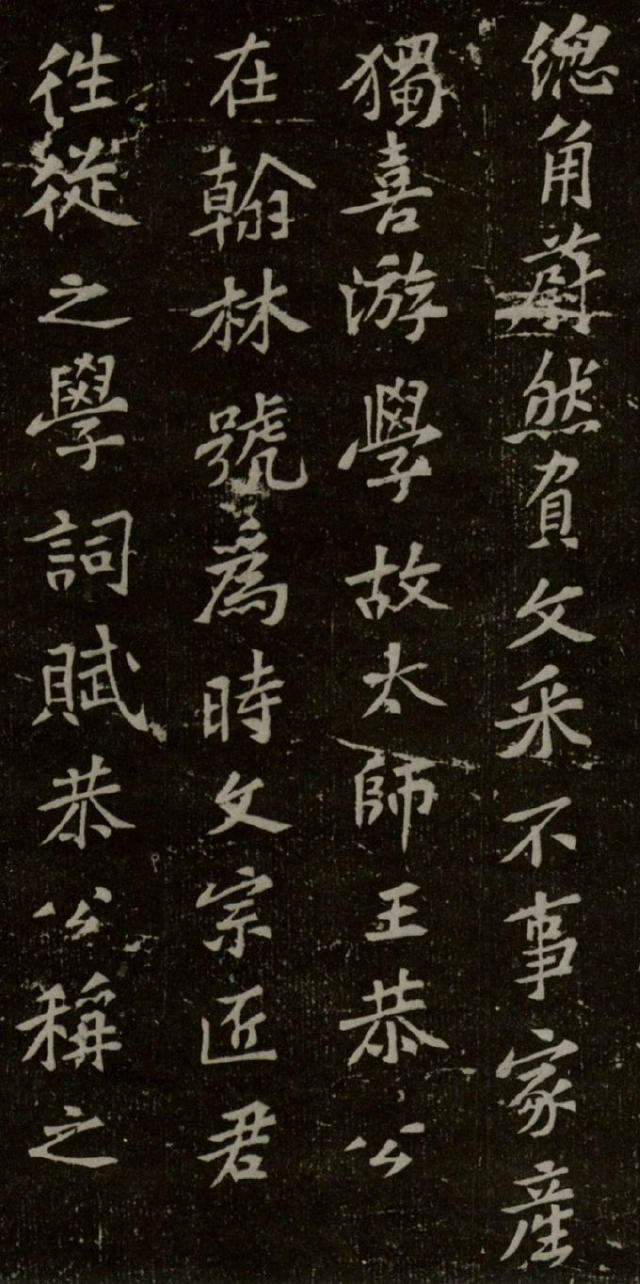 緫角蔚然負文采不事家産
獨喜游學故太師王恭公
在翰林號爲時文宗匠君
徃從之學詞賦恭公稱之